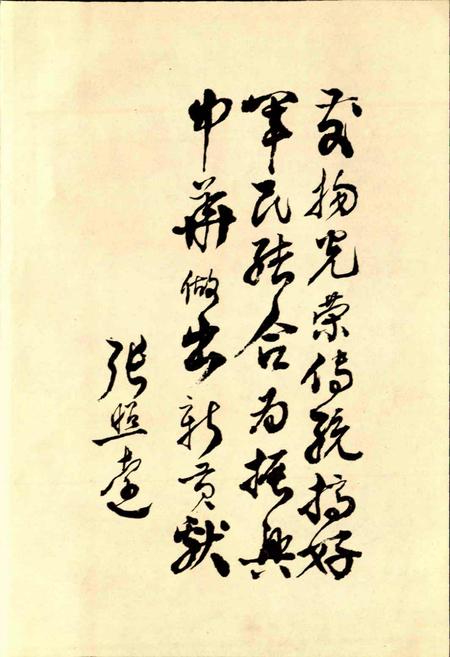 发扬光荣传统搞好
军民结合为振兴
中华做出新贡献
张照远